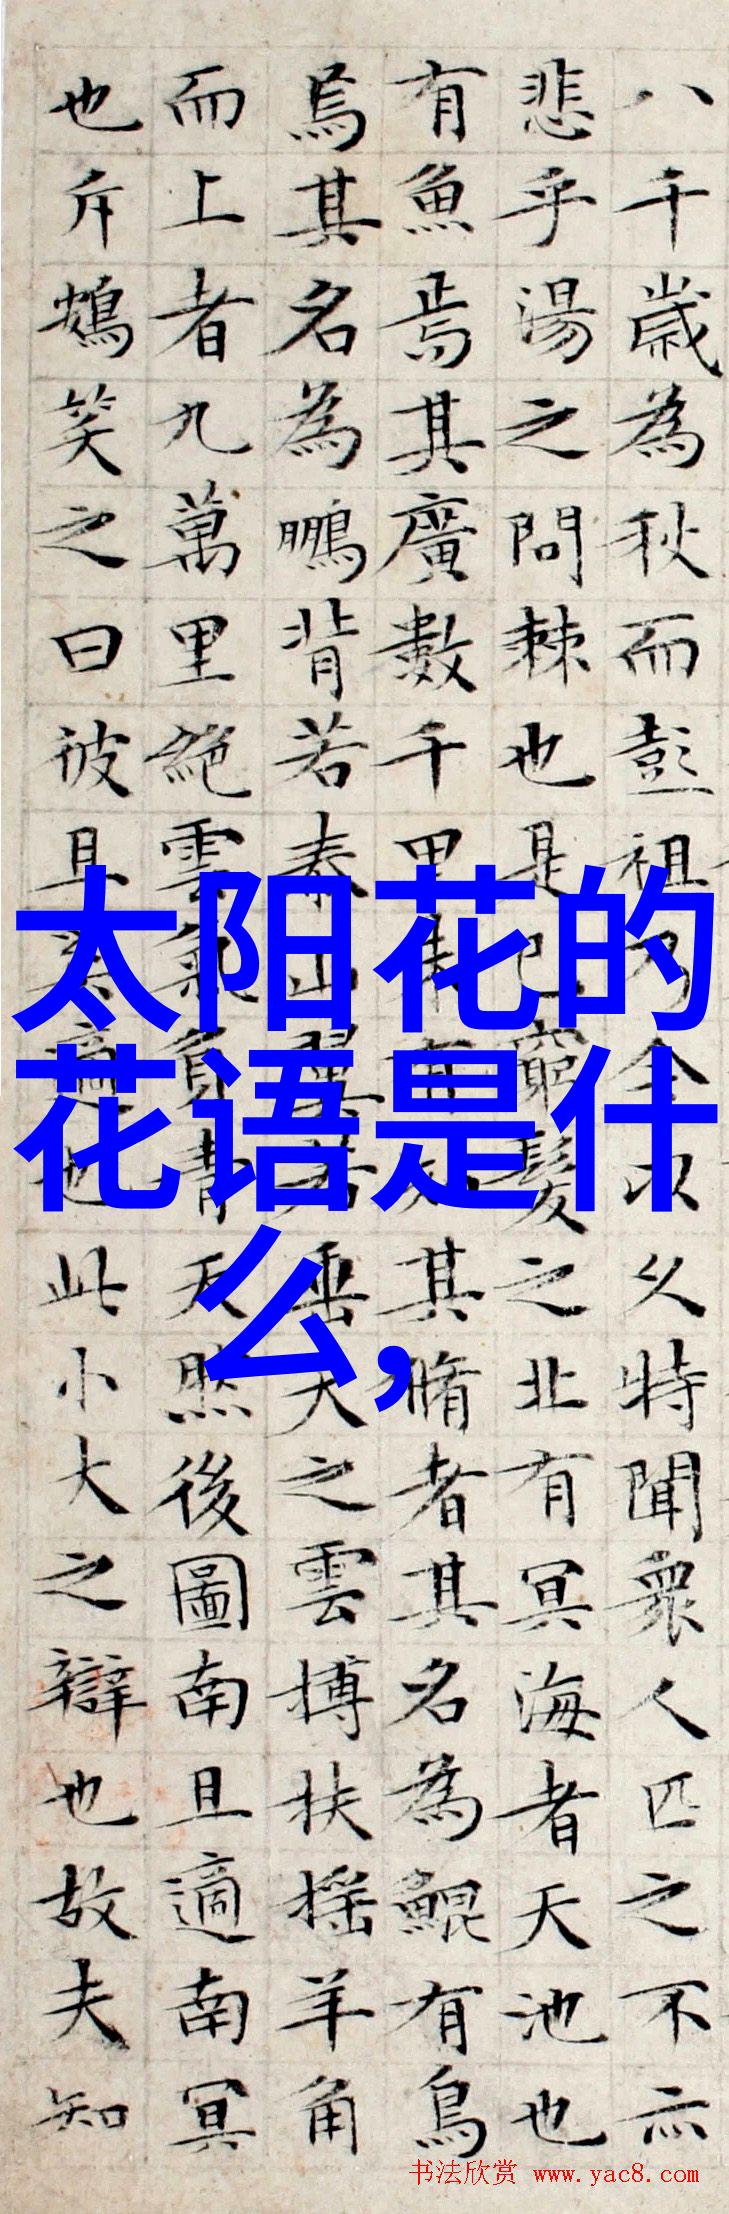 八千歲為秋而彭祖乃今以久特聞衆人匹之不亦
悲乎湯之問棘也是已窮髮之北有冥海者天池也
有魚焉其廣數千里未有知其脩者其名為鯤有鳥
焉其名為鵬背若泰山翼若垂天之雲搏扶搖羊角
而上者九萬里絕雲氣負青天然後圖南且適南冥
也斥鴳笑之曰彼且奚適也此小大之辯也故夫知
太阳花的
花语是什
么,
书法欣赏 www.yac8.com